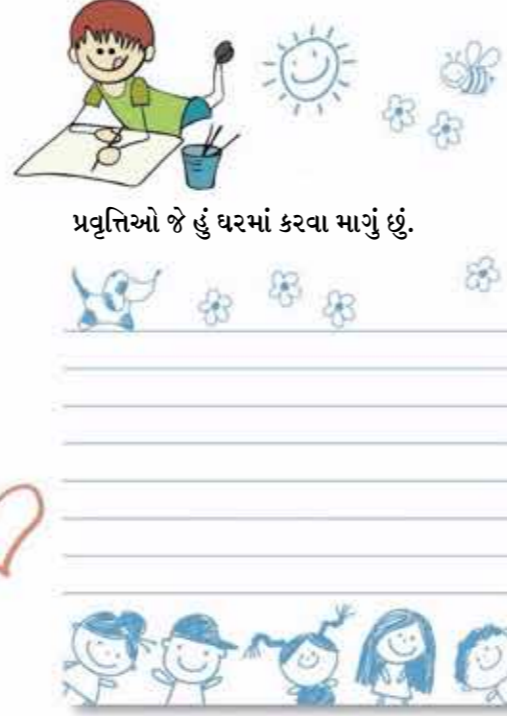 પ્રવૃત્તિઓ જે હું ઘરમાં કરવા માગું છું.